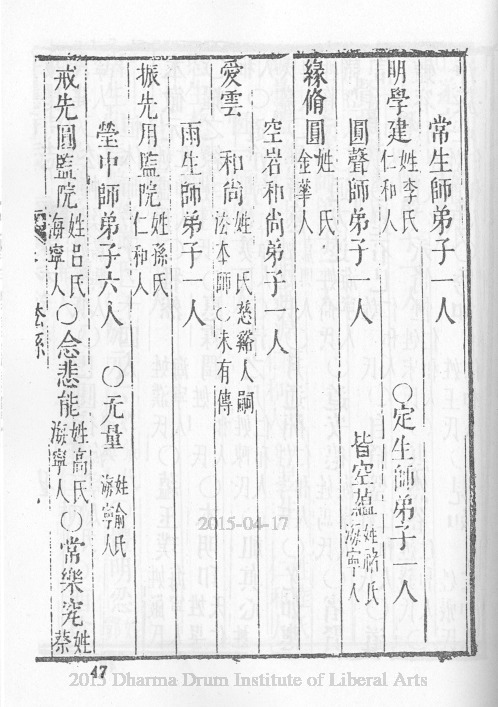 常生師弟子一人 ○定生師弟子一人
明學建 姓李氏仁和人
圓聲師弟子 人 皆空蘊 姓褚氏海寧人
緣脩圓 姓 氏金華人
空岩和尚弟子一人
愛雲 和尚 姓 氏慈谿人嗣 本師○未有傳
雨生師弟子一人
振先用監院 姓孫氏仁和人
瑩中師弟子六人 ○无量 姓俞氏海寧人
戒先圓監院 姓呂氏海寧人○念悲能 姓高氏海寧人○常樂究 姓蔡
47
2015-04-17
2015 Dharma Drum Institute of Liberal Arts